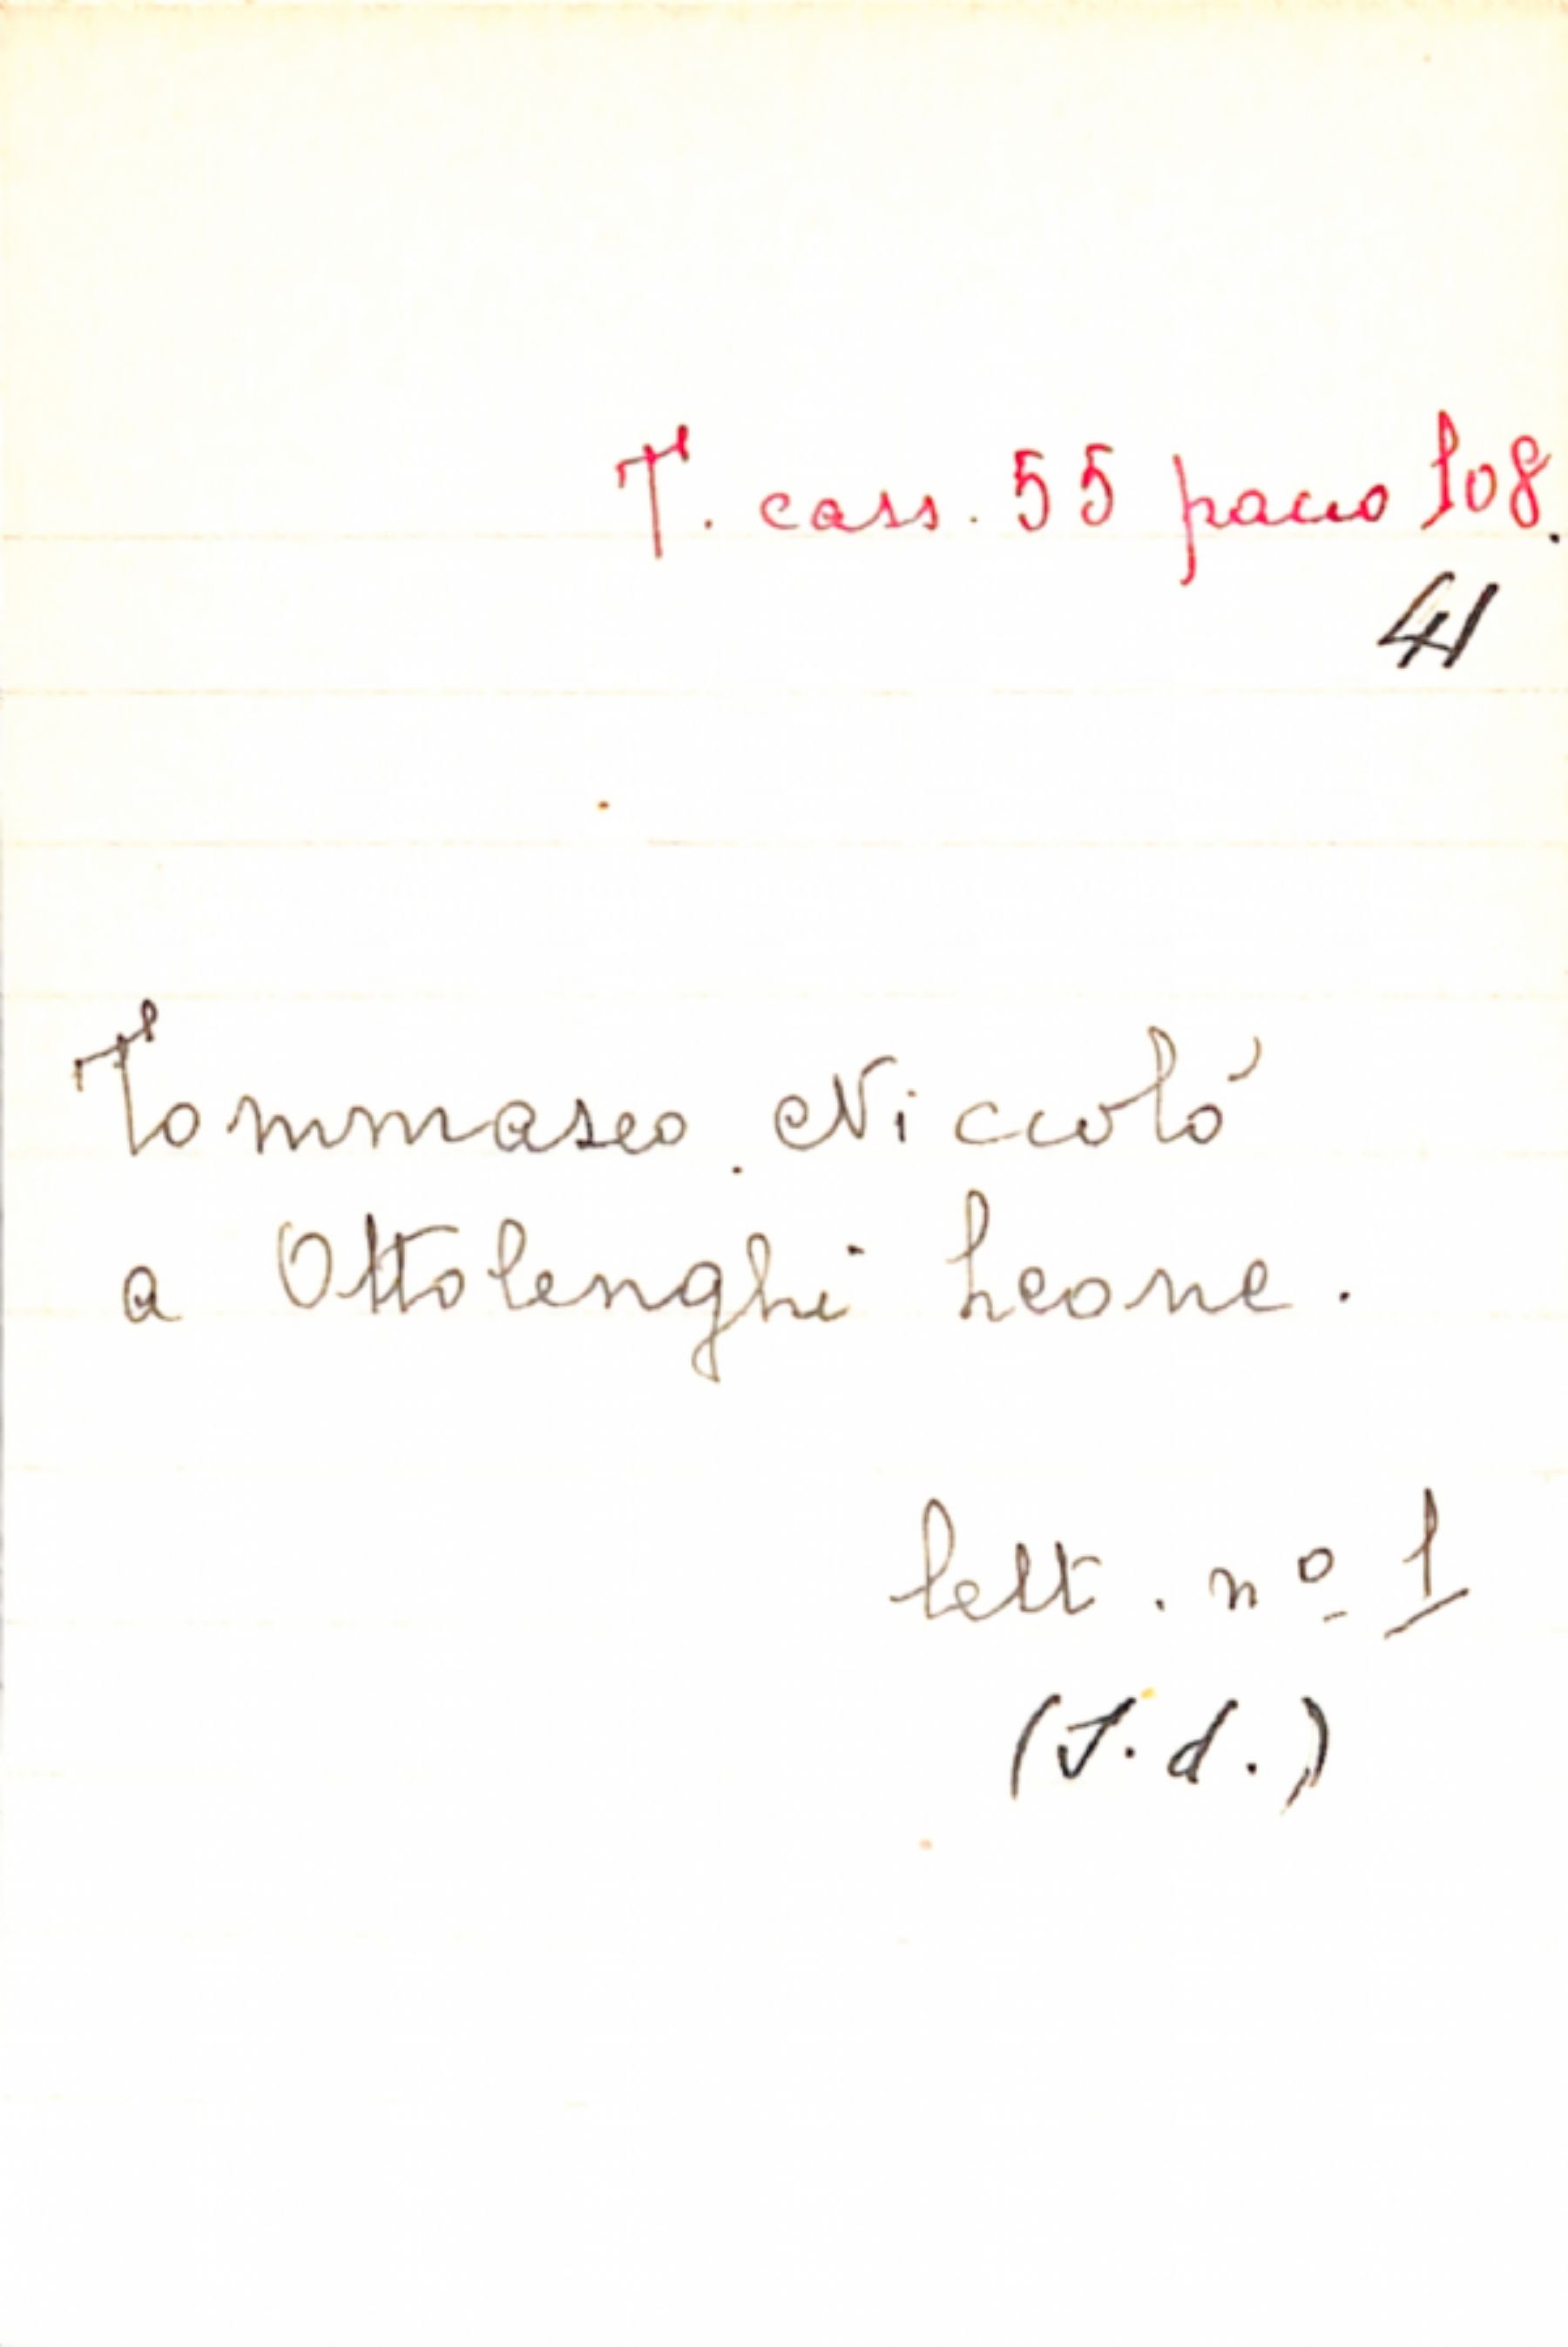 T. cass. 55 pacco 108.
41
Tommaseo Niccoló
a Ottolenghi Leone.
lett. nº 1
(S. d.)